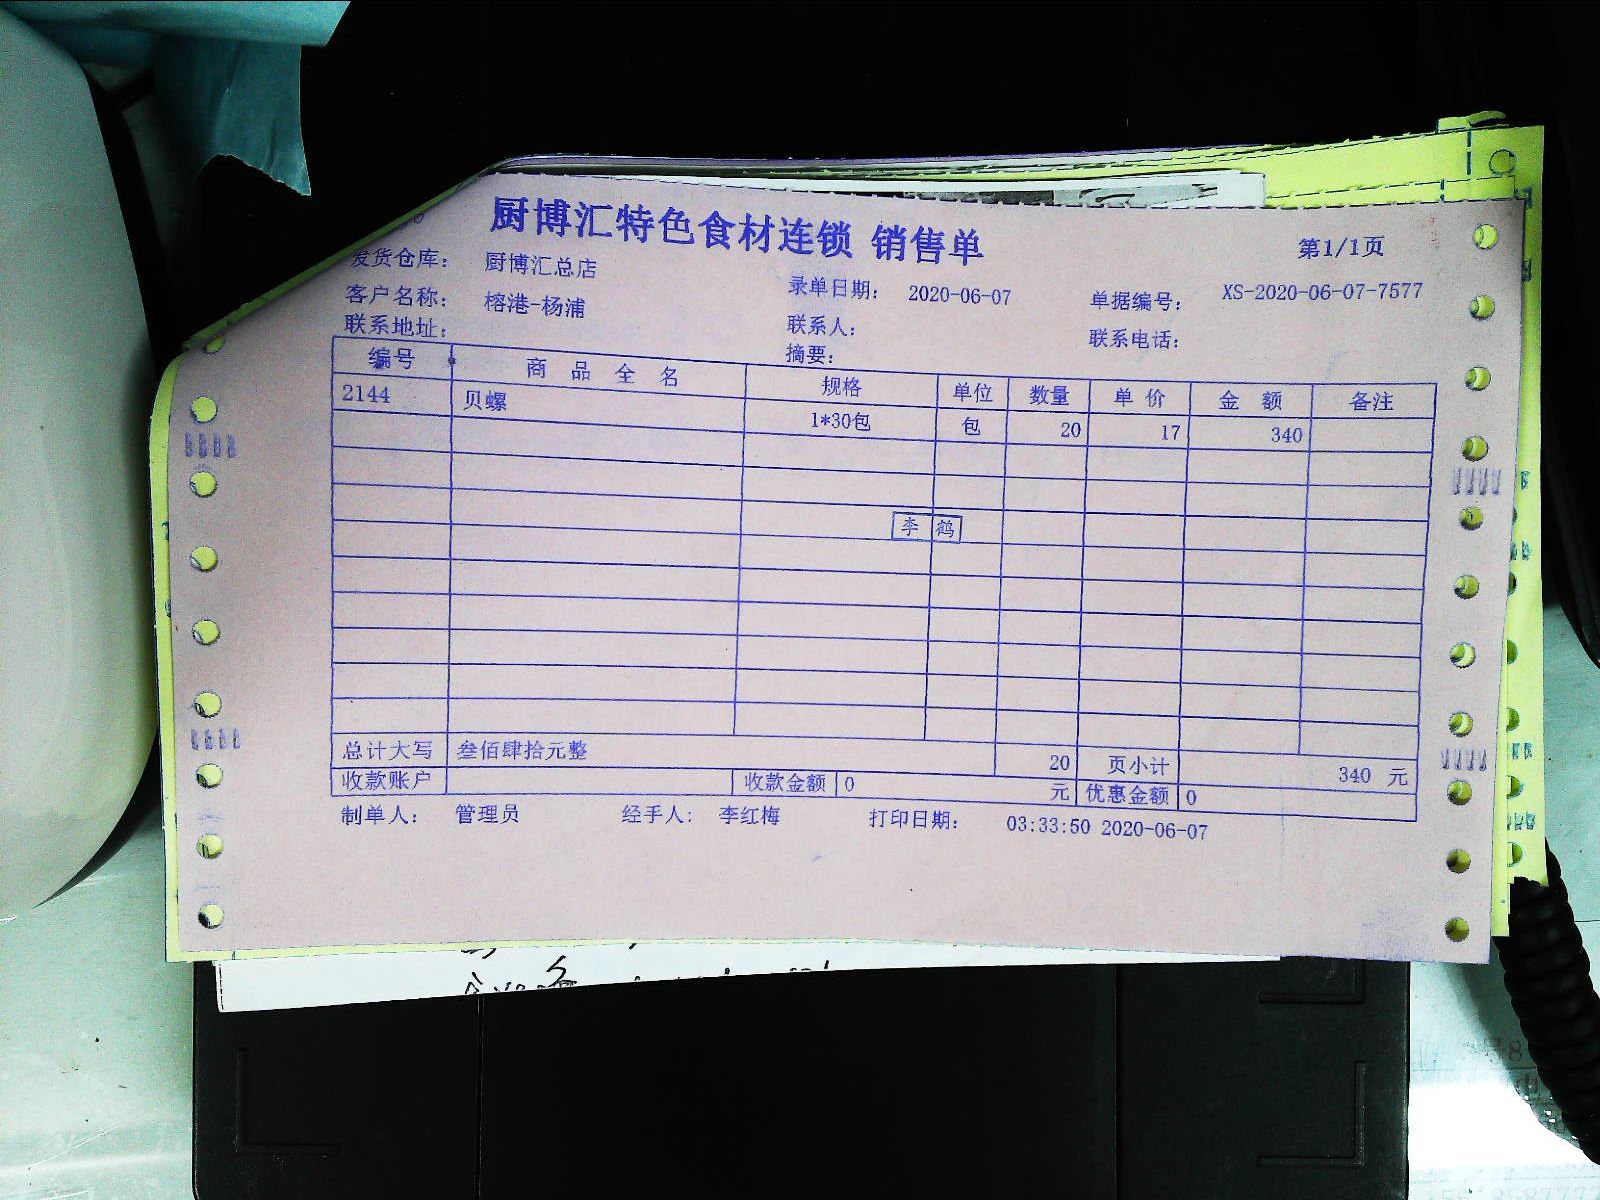 厨博汇特色食材连锁 销售单
第1/1页
发货仓库： 厨博汇总店
录单日期： 2020-06-07 单据编号： XS-2020-06-07-7577
客户名称： 榕港-杨浦
联系人： 联系电话：
联系地址： 摘要：
编号 商 品 全 名 规格 单位 数量 单 价 金 额 备注
2144 贝螺 1*30包 包 20 17 340
李 鹤
总计大写 叁佰肆拾元整 20 页小计 340 元
收款账户 收款金额 0 元 优惠金额 0
制单人： 管理员 经手人： 李红梅 打印日期： 03:33:50 2020-06-07